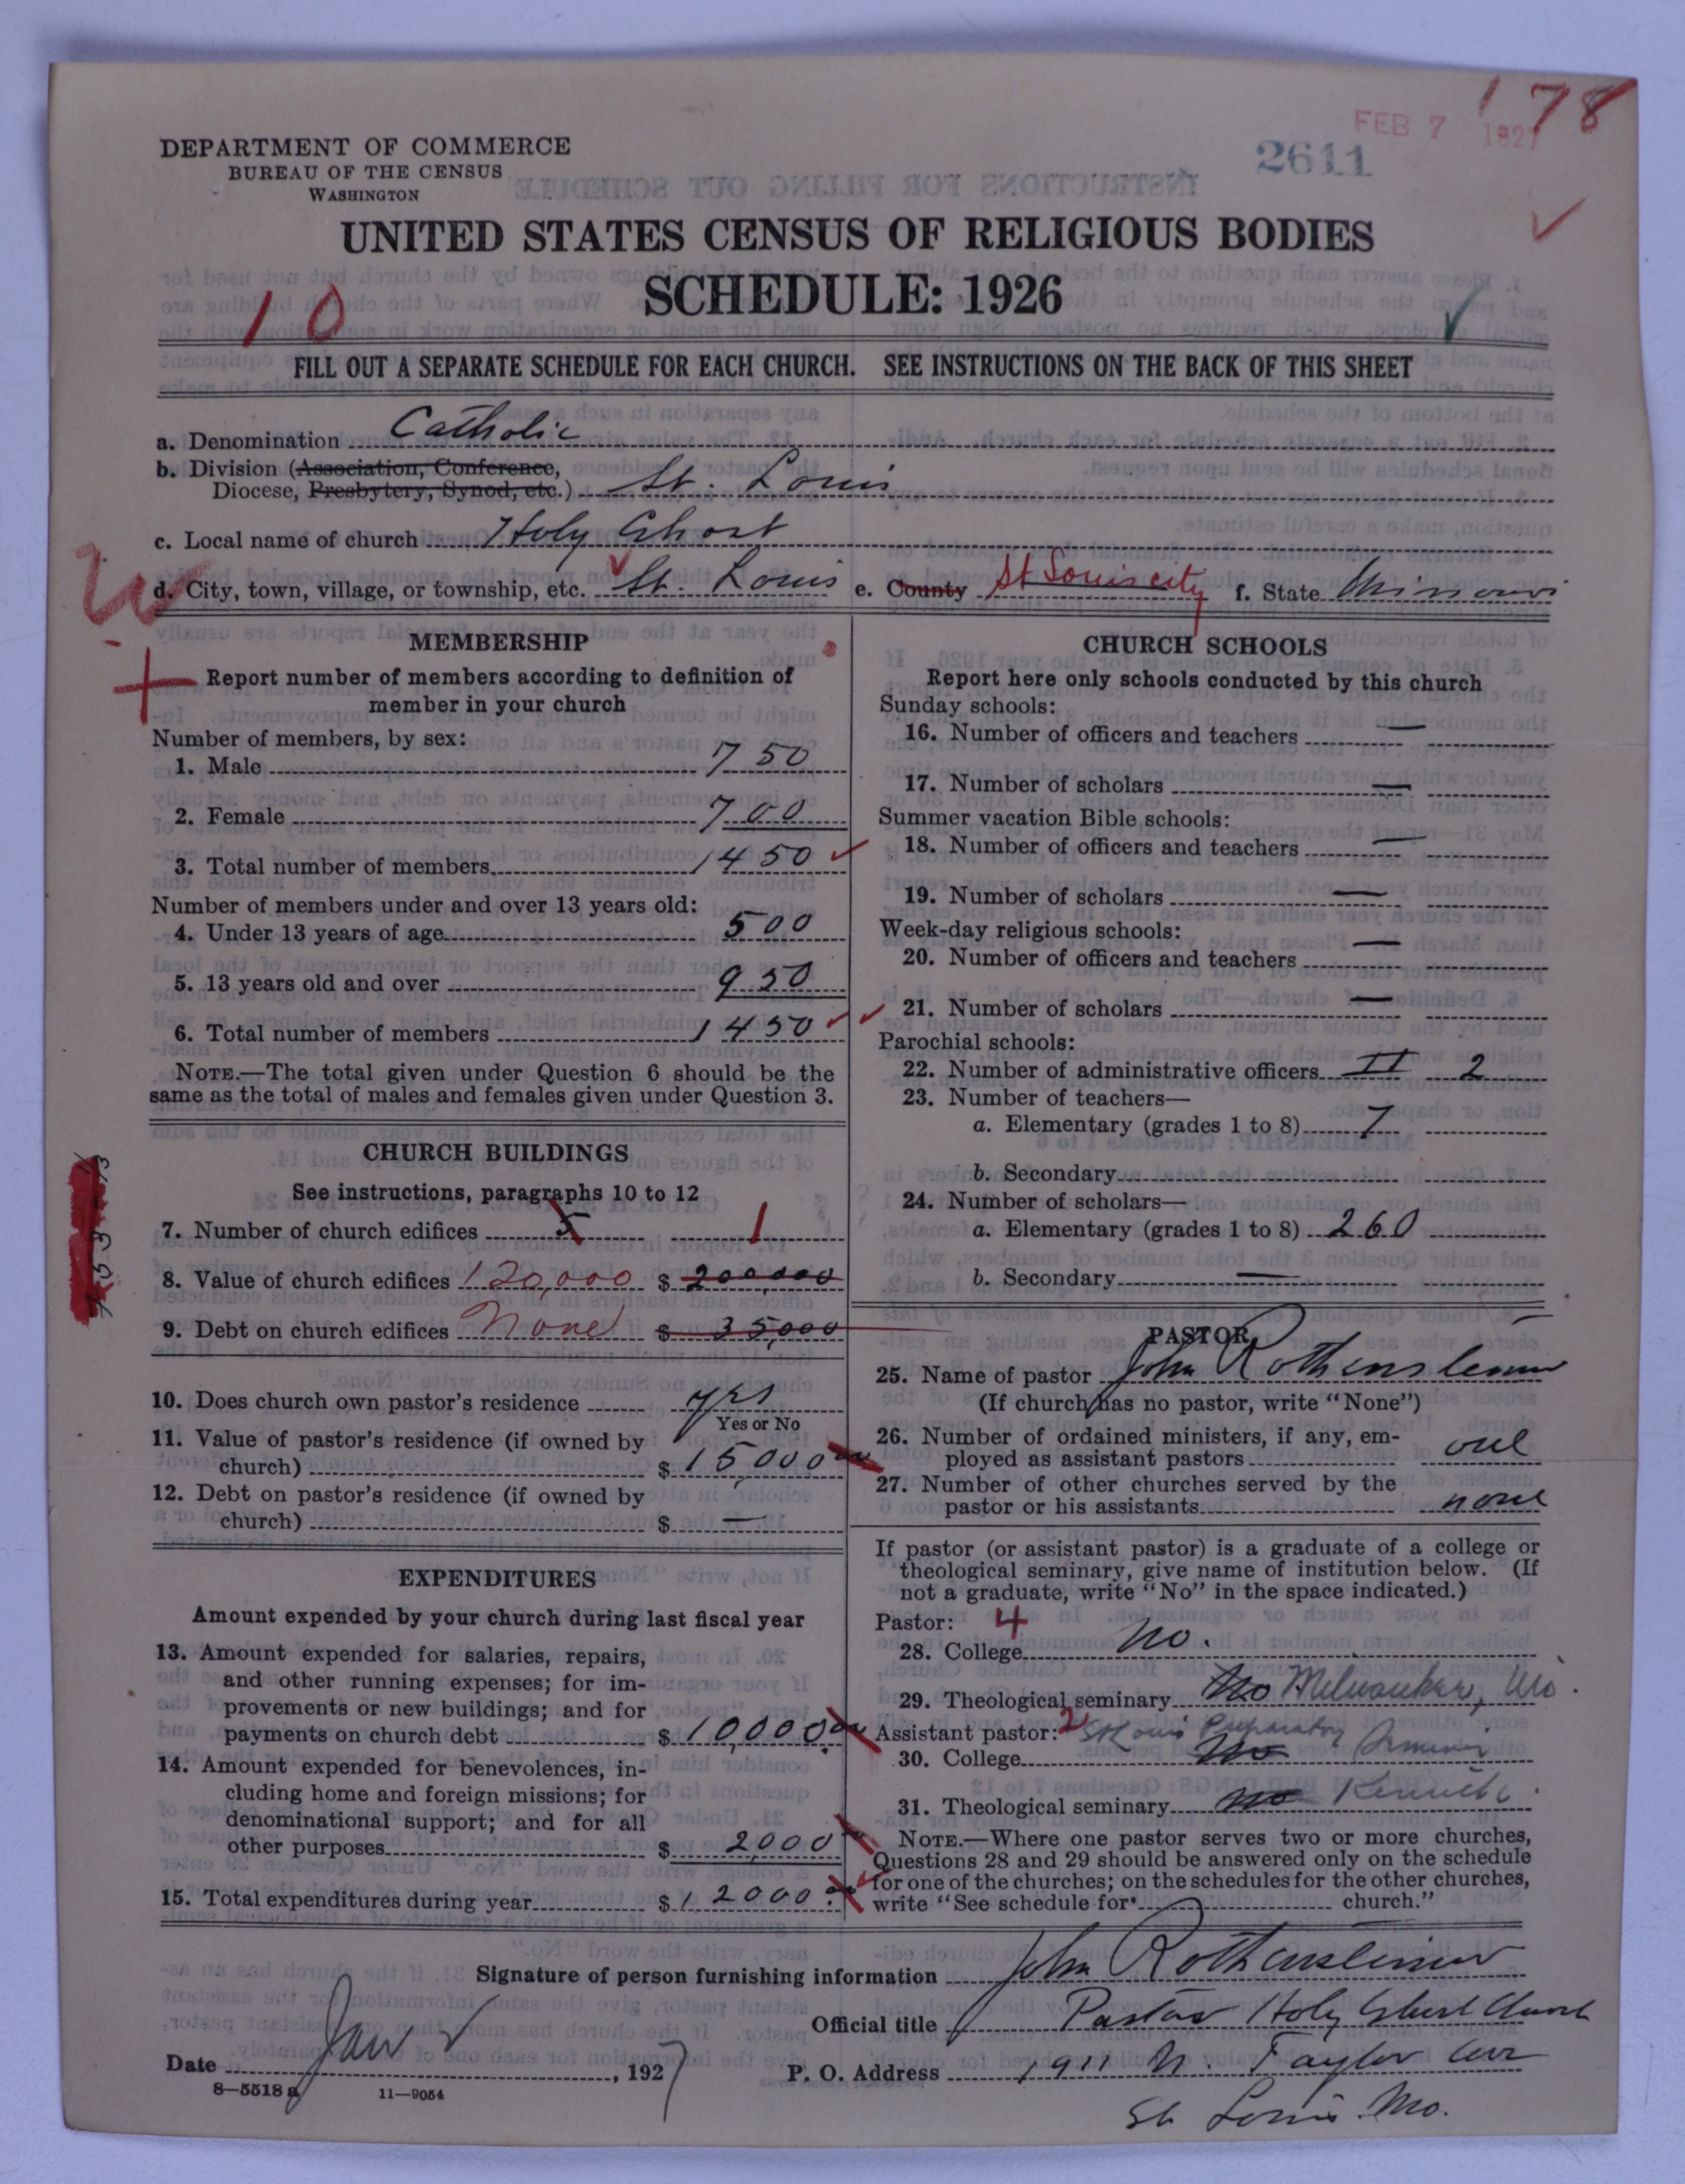 178
FEB 7 1927
2611
DEPARTMENT OF COMMERCE
BUREAU OF THE CENSUS
WASHINGTON
UNITED STATES CENSUS OF RELIGIOUS BODIES
SCHEDULE: 1926
10
FILL OUT A SEPARATE SCHEDULE FOR EACH CHURCH. SEE INSTRUCTIONS ON THE BACK OF THIS SHEET
a. Denomination Catholic
b. Division (Association, Conference,
Diocese, Presbytery, Synod, etc.) St. Louis
c. Local name of church Holy Ghost
d. City, town, village, or township, etc. St. Louis e. County St Louis city f. State Missouri
MEMBERSHIP
Report number of members according to definition of
member in your church
Number of members, by sex:
1. Male 750
2. Female 700
3. Total number of members 1450
Number of members under and over 13 years old:
4. Under 13 years of age 500
5. 13 years old and over 950
6. Total number of members 1450
NOTE.—The total given under Question 6 should be the
same as the total of males and females given under Question 3.
CHURCH BUILDINGS
See instructions, paragraphs 10 to 12
7. Number of church edifices 5 1
8. Value of church edifices 120,000 $ 200,000
9. Debt on church edifices None $ 35,000
10. Does church own pastor's residence yes
Yes or No
11. Value of pastor's residence (if owned by
church) $ 15,000
12. Debt on pastor's residence (if owned by
church) $ —
EXPENDITURES
Amount expended by your church during last fiscal year
13. Amount expended for salaries, repairs,
and other running expenses; for im-
provements or new buildings; and for
payments on church debt $ 10,000
14. Amount expended for benevolences, in-
cluding home and foreign missions; for
denominational support; and for all
other purposes $ 2000
15. Total expenditures during year $ 12000
CHURCH SCHOOLS
Report here only schools conducted by this church
Sunday schools:
16. Number of officers and teachers —
17. Number of scholars —
Summer vacation Bible schools:
18. Number of officers and teachers —
19. Number of scholars —
Week-day religious schools:
20. Number of officers and teachers —
21. Number of scholars —
Parochial schools:
22. Number of administrative officers II 2
23. Number of teachers—
a. Elementary (grades 1 to 8) 7
b. Secondary
24. Number of scholars—
a. Elementary (grades 1 to 8) 260
b. Secondary —
PASTOR
25. Name of pastor John Rothensteiner
(If church has no pastor, write "None")
26. Number of ordained ministers, if any, em-
ployed as assistant pastors one
27. Number of other churches served by the
pastor or his assistants none
If pastor (or assistant pastor) is a graduate of a college or
theological seminary, give name of institution below. (If
not a graduate, write "No" in the space indicated.)
Pastor: 4
28. College no.
29. Theological seminary No Milwaukee, Wis.
Assistant pastor: 2 St Louis Preparatory
30. College No Seminary
31. Theological seminary no Kenrick
NOTE.—Where one pastor serves two or more churches,
Questions 28 and 29 should be answered only on the schedule
for one of the churches; on the schedules for the other churches,
write "See schedule for church."
Signature of person furnishing information John Rothensteiner
Official title Pastor Holy Ghost Church
Date Jan , 1927 P. O. Address 1911 N. Taylor Ave
8—5518 a 11—9054
St Louis Mo.